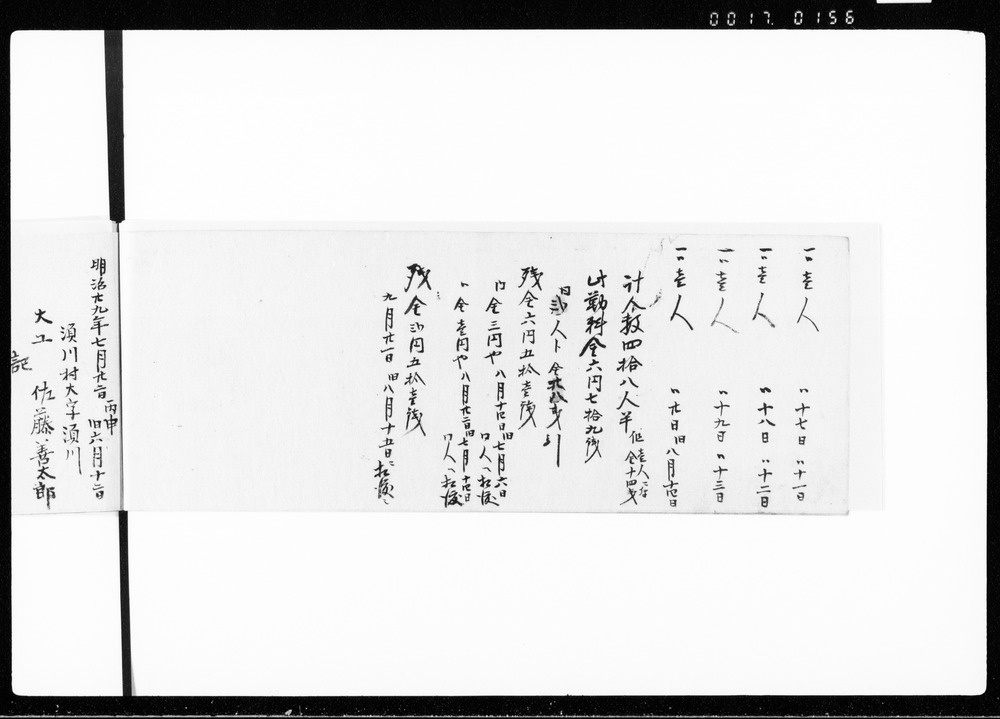 0017. 0156
一〃壱人 〃十七日 〃十一日
一〃壱人 〃十八日 〃十二日
一〃壱人 〃十九日 〃十三日
一〃壱人 〃廿日旧八月十四日
計人数四拾八人半
他壱人ニ付
金十四戋
此勤料金六円七拾九戋
内
弐人ト 金廿八戋引
残金六円五拾壱戋
内金三円也 八月十四日旧七月六日
同人へ相渡
〃金壱円也 八月廿二日旧七月十四日
同人へ相渡
残金弐円五拾壱戋
九月廿一日旧八月十五日ニ相渡ス
明治廿九年七月廿二日
丙申
旧六月十二日
須川村大字須川
大工 佐藤善太郎
記